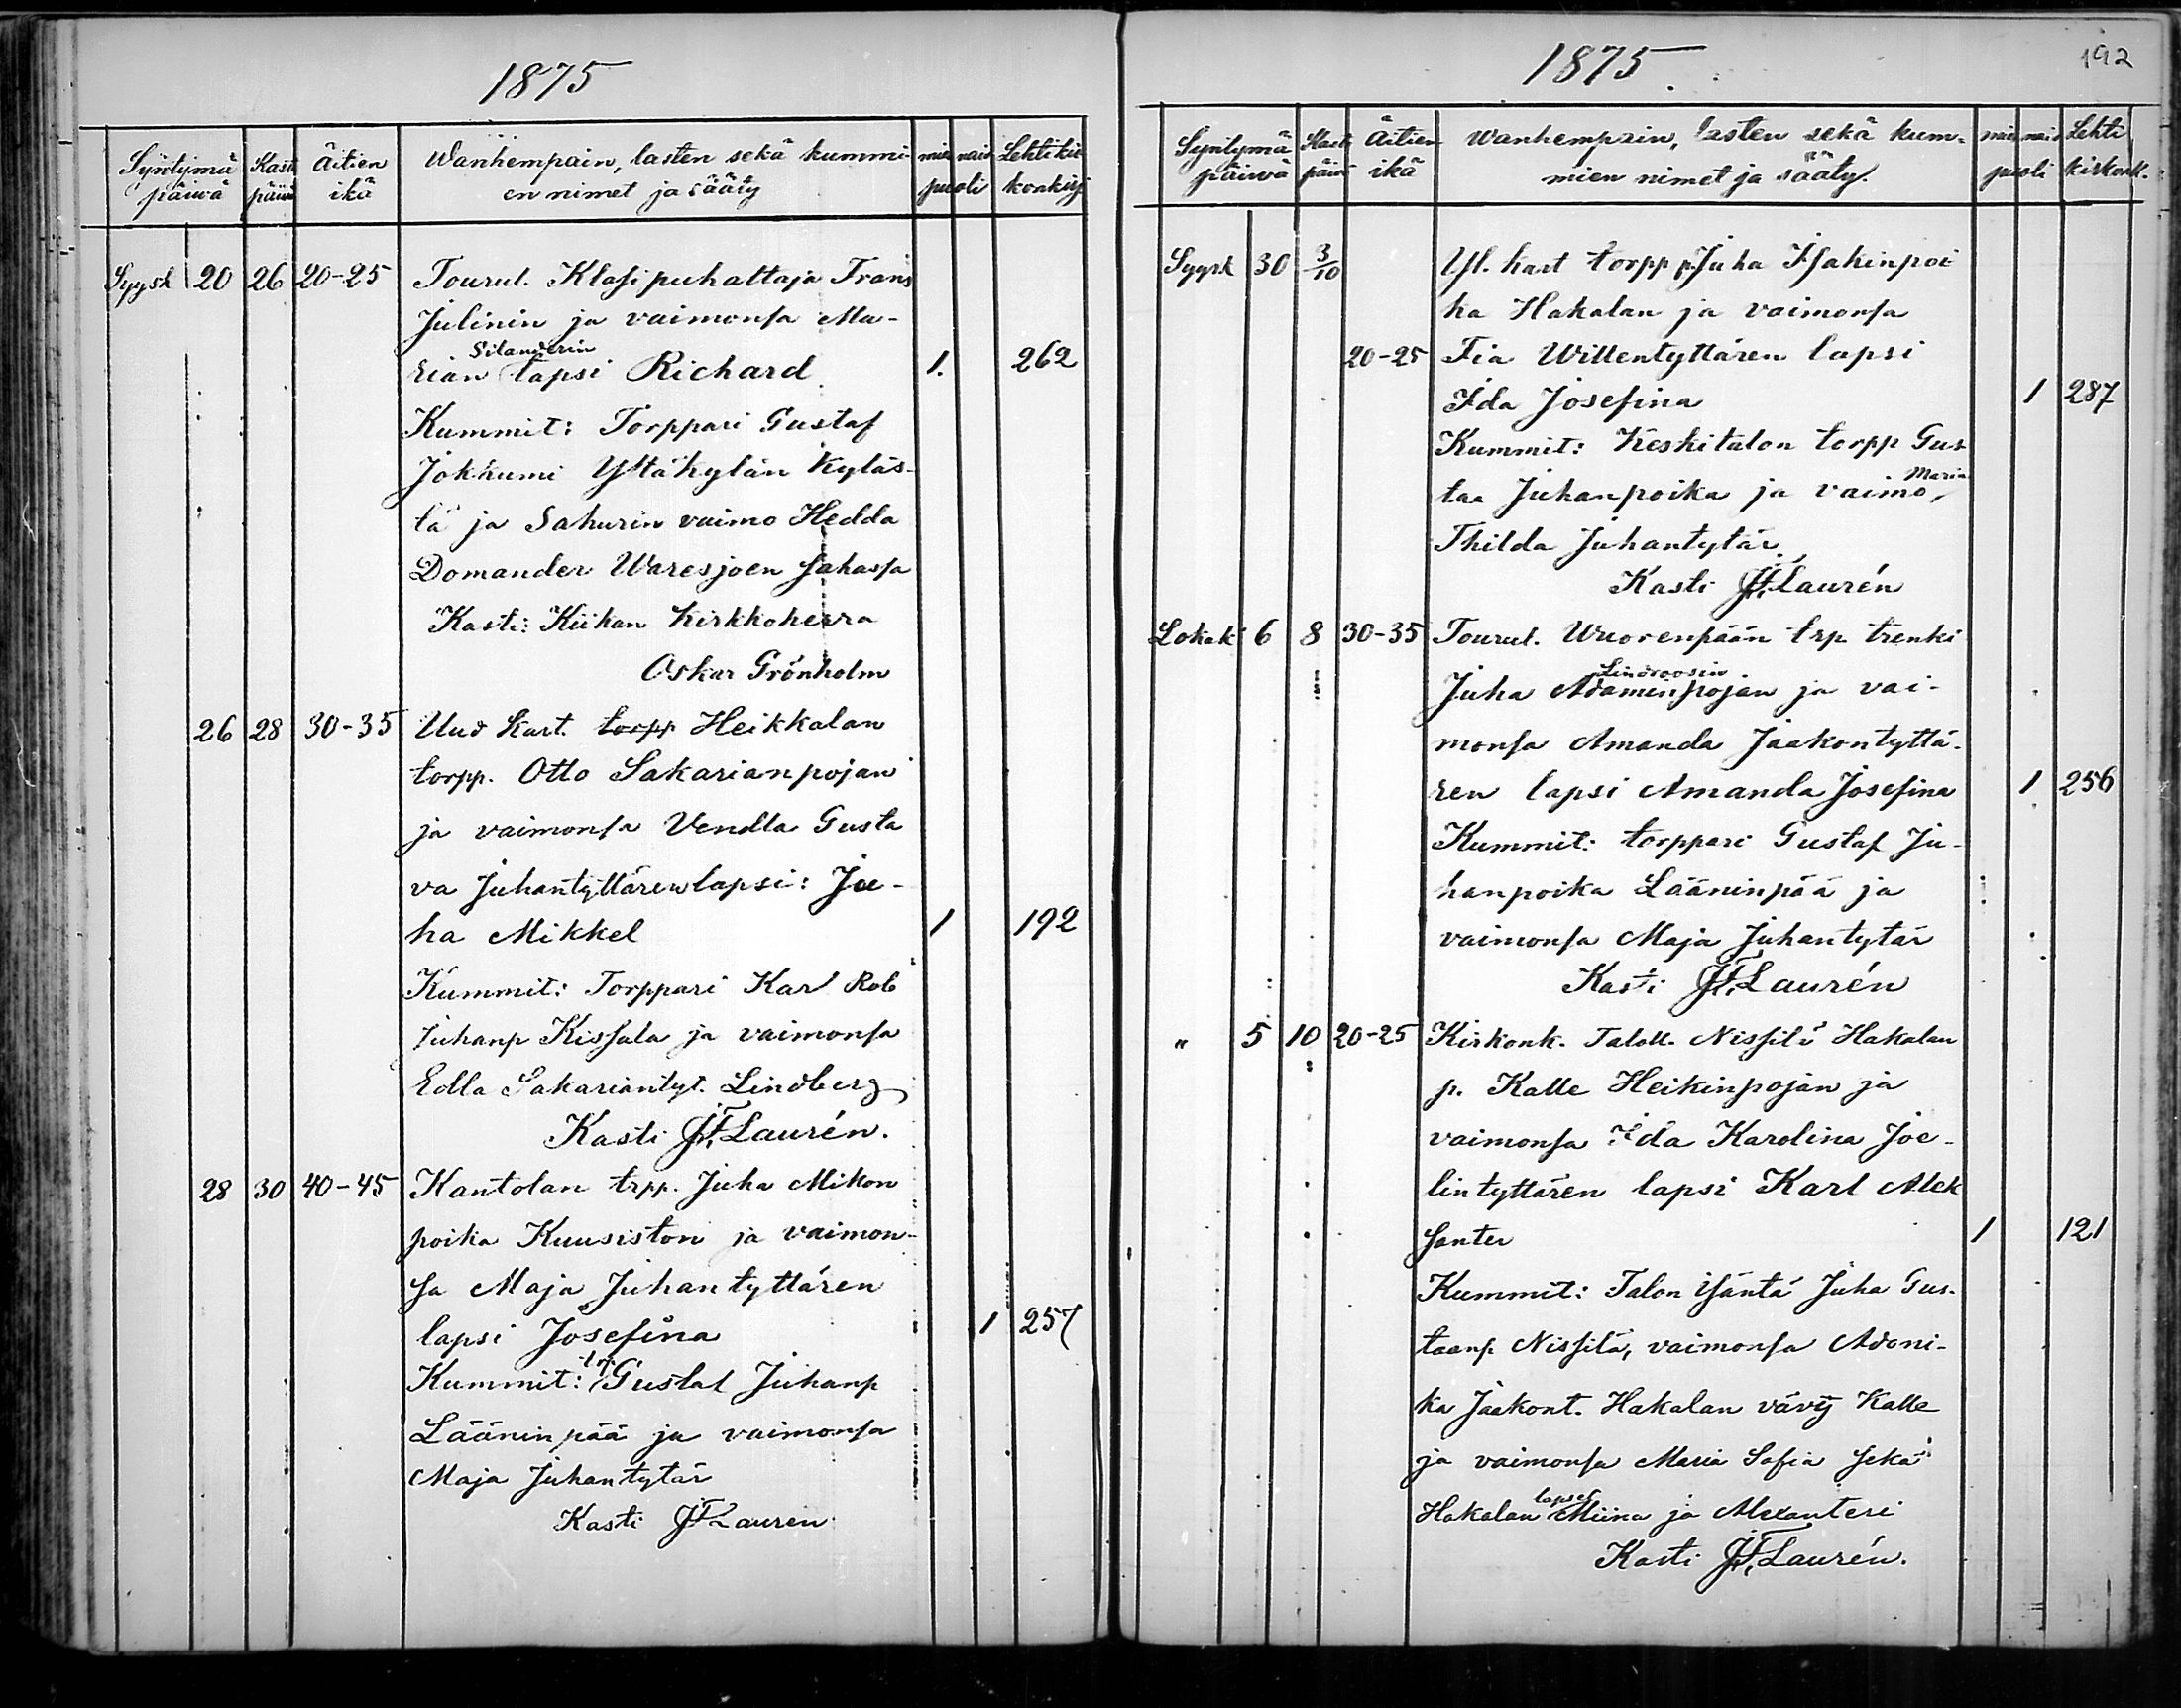 1875
Syntymä päiwä Kast päiwä Äitien ikä Wanhempain, lasten sekä kummi- en nimet ja sääty mies nais puoli Lehti kir- konkirj
Syysk 20 26 20-25 Tourul. Klasipuhaltaja Frans
Julinin ja vaimonsa Ma-
Silanderin
rian lapsi Richard 1. 262
Kummit: Torppari Gustaf
Jokkumi Yttäkylän kyläs-
tä ja Sahurin vaimo Hedda
Domander Waresjoen sahassa
Kasti: Kiikan kirkkoherra
Oskar Grönholm
26 28 30-35 Uud kart. torpp Heikkalan
torpp. Otto Sakarianpojan
ja vaimonsa Vendla Gusta
va Juhantyttären lapsi: Ju-
ha Mikkel 1 192
Kummit: Torppari Karl Rob
Juhanp Kissala ja vaimonsa
Edla Sakariantyt. Lindberg
Kasti J.F. Laurén.
28 30 40-45 Kantolan trpp. Juha Mikon
poika Kuusiston ja vaimon-
sa Maja Juhantyttären
lapsi Josefina 1 257
Kummit: Gustaf Juhanp
Lääninpää ja vaimonsa
Maja Juhantytär
Kasti JF Lauren
1875.
192
Syntymä päiwä Kast päiw Äitien ikä Wanhempain, lasten sekä kum- mien nimet ja sääty. mies nais puoli Lehti kirkonk.
Syysk 30 3/10 Yl. kart torpp p. Juha Isakinpoi
ka Hakalan ja vaimonsa
20-25 Fia Willentyttären lapsi
Ida Josefina 1 287
Kummit: Keskitalon torpp Gus
taa Juhanpoika ja vaimo, Maria
Thilda Juhantytär
Kasti J.F. Laurén
Lokak 6 8 30-35 Tourul. Wuorenpään trp trenki
Lindroosin
Juha Adaminpojan ja vai-
monsa Amanda Jaakontyttä-
ren lapsi Amanda Josefina 1 256
Kummit: torppari Gustaf Ju-
hanpoika Lääninpää ja
vaimonsa Maja Juhantytär
Kasti J.F. Laurén
" 5 10 20-25 Kirkonk. Taloll. Nissilä Hakalan
p. Kalle Heikinpojan ja
vaimonsa Ida Karolina Joe-
lintyttären lapsi Karl Alek
santer 1 121
Kummit: Talon isäntä Juha Gus-
taanp Nissilä, vaimonsa Adoni-
ka Jaakont. Hakalan vävy Kalle
ja vaimonsa Maria Sofia sekä
lapset
Hakalan Miina ja Alexanteri
Kasti J.F. Laurén.